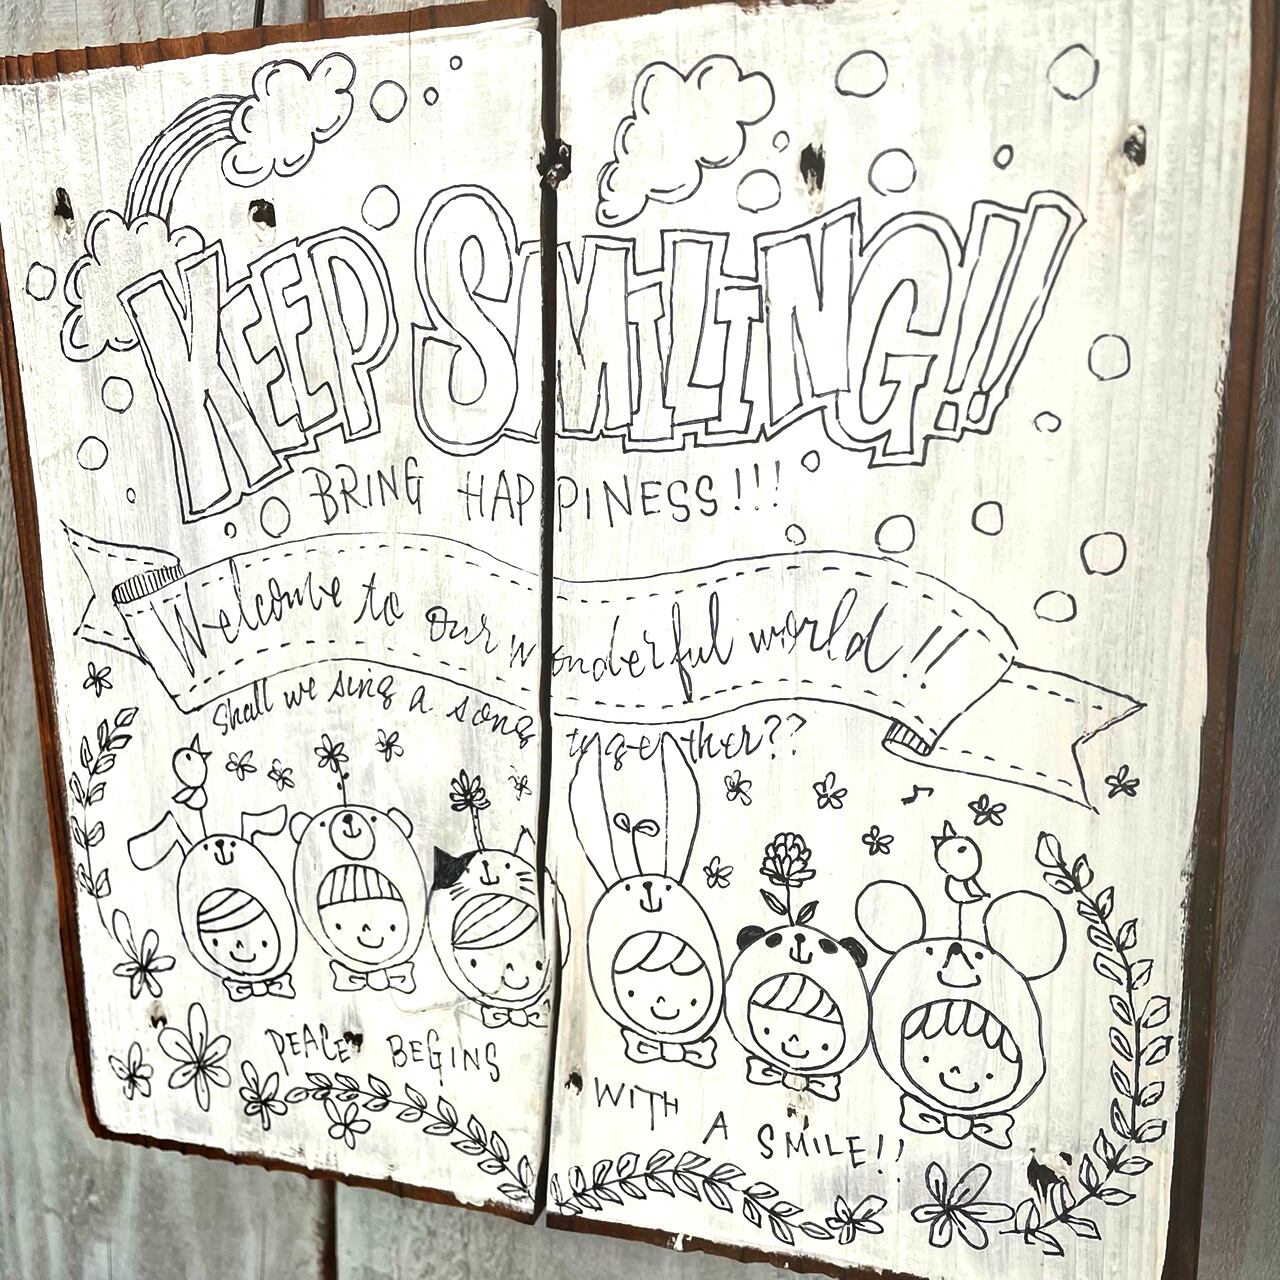 KEEP SMiLiNG!!
BRING HAPPINESS!!!
Welcome to our wonderful world!!
Shall we sing a song together??
PEACE BEGINS
WITH A SMILE!!